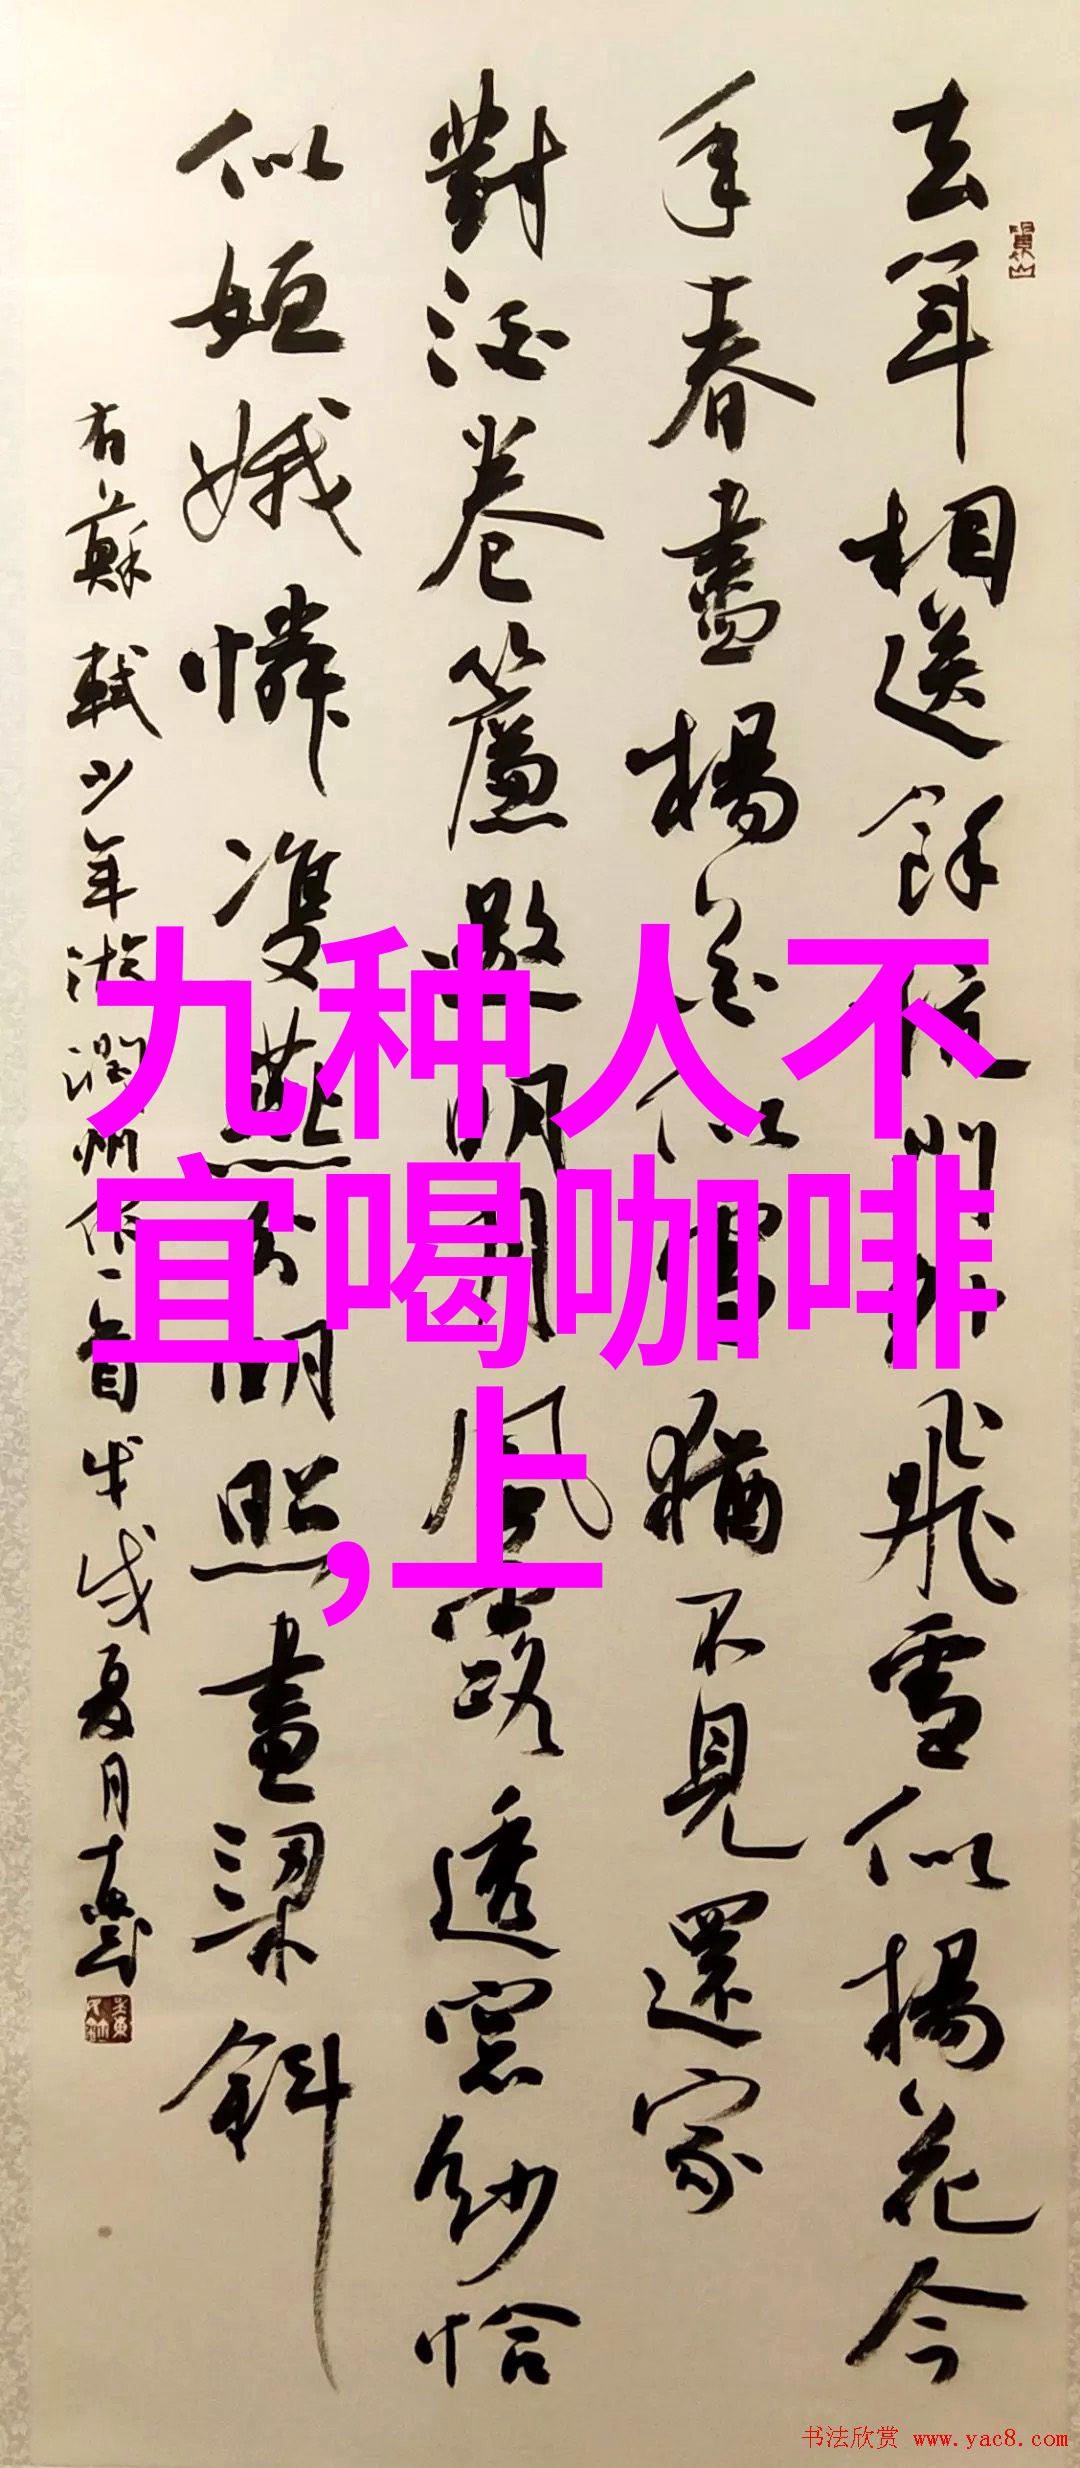 去年相送餘杭門外飛雪似楊花今
年春盡楊花似雪猶不見還家
對酒卷簾邀明月風露透窓紗恰
似姮娥憐雙燕分明照畫梁斜
右蘇軾少年游潤州作一首戊戌夏月
九种人不
宜喝咖啡
,上
书法欣赏 www.yac8.com